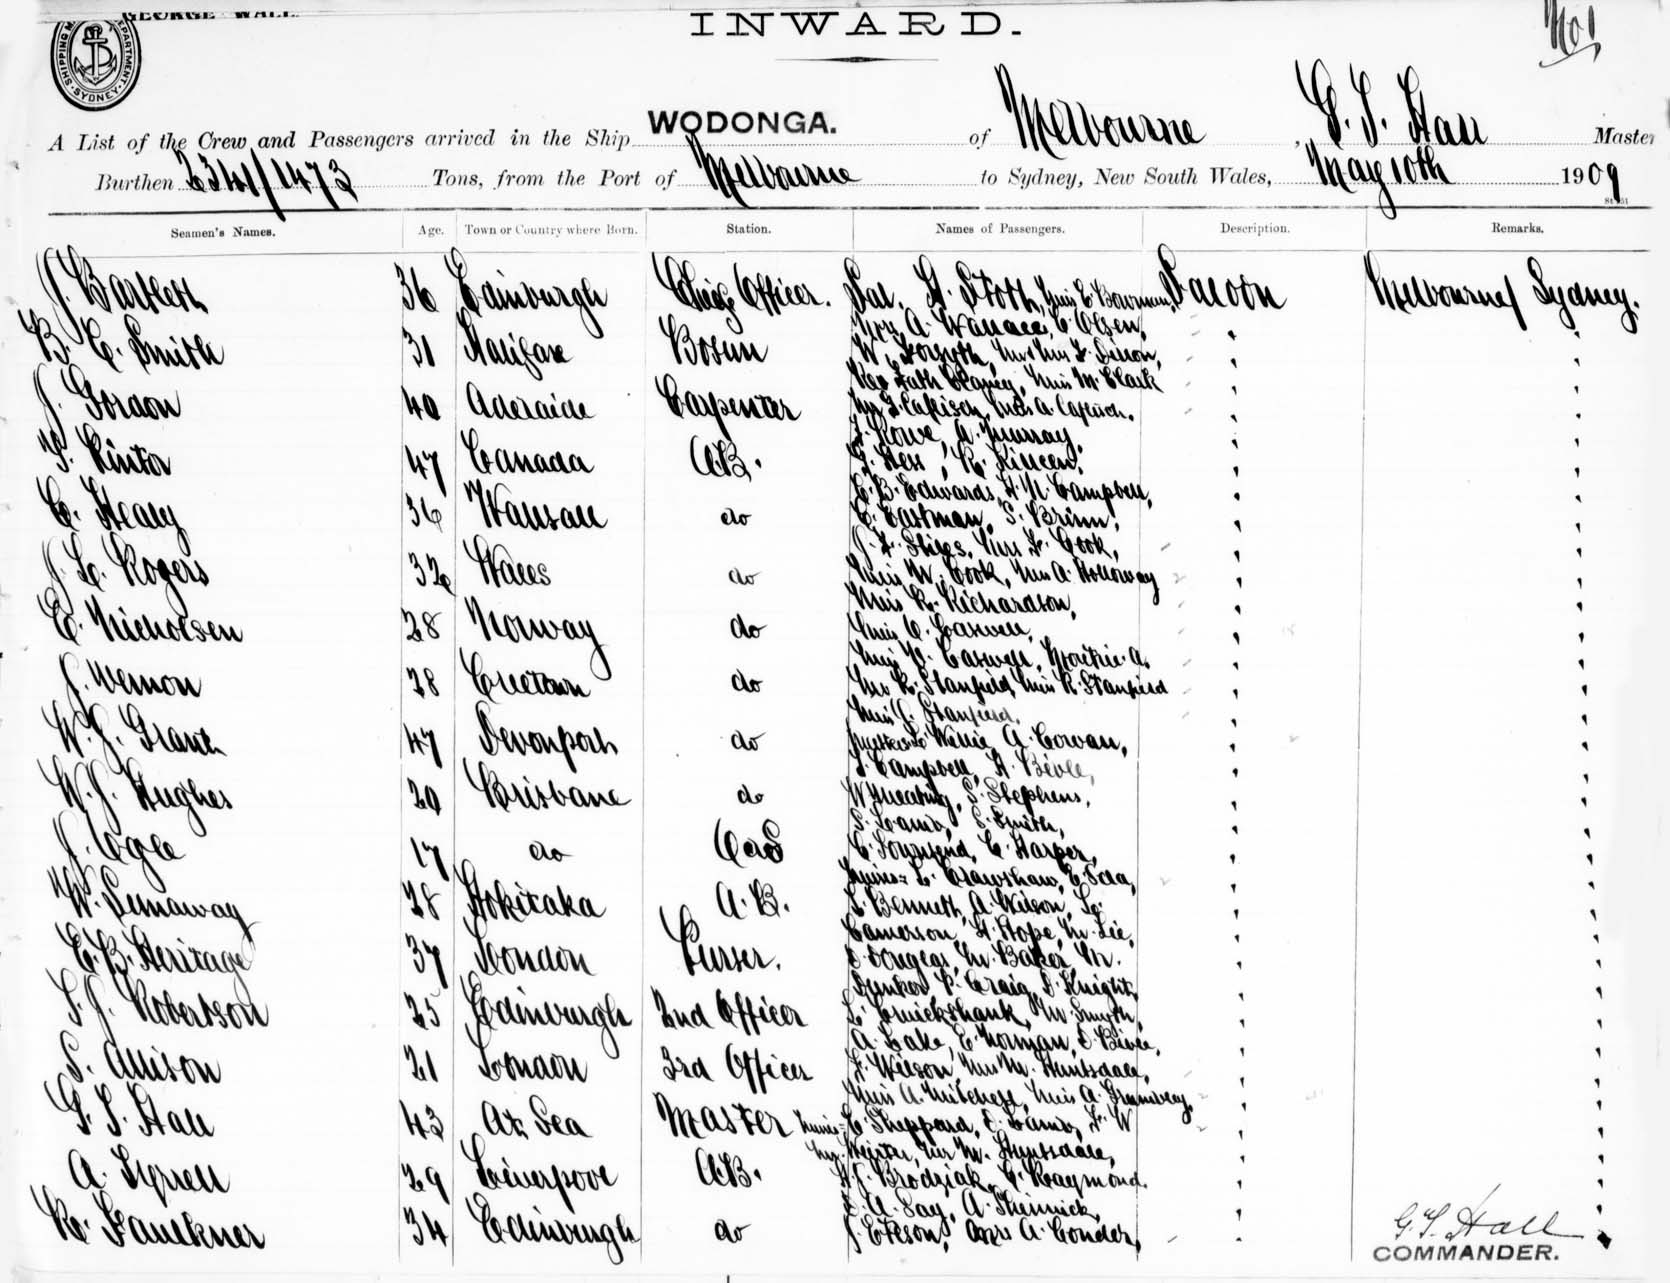 GEORGE WALL.
INWARD.
No 1
SHIPPING MASTER'S DEPARTMENT SYDNEY
A List of the Crew and Passengers arrived in the Ship WODONGA. of Melbourne, G. T. Hall Master
Burthen 2341/1473 Tons, from the Port of Melbourne to Sydney, New South Wales, May 10th 1909
Seamen's Names. Age. Town or Country where Born. Station. Names of Passengers. Description. Remarks.
J. Bartlett 36 Edinburgh Chief Officer. Sal. H. Stott, Miss E. Bowman, Saloon Melbourne/Sydney.
Mrs A. Wallace, C. Olsen,
B. C. Smith 31 Halifax Bosun W. Forsyth, Mr & Mrs F. Dillon,
Rev Fath Claney, Miss M. Clark
J. Gordon 40 Adelaide Carpenter Mr J. Caflisch, Mrs A. Caflisch.
J. Rowe, A. Murray,
T. Kintor 47 Canada A.B. G. Hess, R. Killeen,
C. B. Edwards, H. N. Campbell,
C. Healy 36 Wausau do C. Eastman, S. Brinn,
J. F. Stiles, Mrs F. Cook,
J. L. Rogers 32 Wales do Miss M. Cook, Mrs A. Holloway
Miss R. Richardson,
E. Nicholsen 28 Norway do Miss C. Caswell,
Miss V. Caswell, A.
J. Vernon 28 Creetown do Mrs R. Stanfield, Miss R. Stanfield
Miss C. Stanfield.
W. J. Grant 47 Devonport do Willie, A. Cowan,
J. Campbell, H. Bible,
W. J. Hughes 20 Brisbane do W. Keating, S. Stephens,
S. Lamb, S. Smith,
J. Ogle 17 do O&S C. Townsend, C. Harper,
L. Crawshaw, E.
W. Senaway 28 Hokitaka A.B. S. Bennett, A. Wilson, L.
Cameron, H. Hope, M. Lee,
E. B. Heritage 37 London Purser. D. Douglas, M. Baker, Mr.
Junker, P. Craig, D. Knight,
T. J. Robertson 25 Edinburgh 2nd Officer L. Cruickshank, M. Smyth,
A. Lake, E. Norman, D. Bible,
S. Allison 21 London 3rd Officer F. Wilson, Mrs M. Huntsdale,
Miss A. Mitchell, Miss A.
G. T. Hall 43 At Sea Master C. Sheppard, D. Lamb, F. W
Mr. M. Huntsdale,
A. Tyrrell 29 Liverpool A.B. H. J. Brodziak, C. Raymond.
D. A. Say, A. Shinnick,
R. Faulkner 34 Edinburgh do J. Mrs A. Conder,
G. T. Hall
COMMANDER.